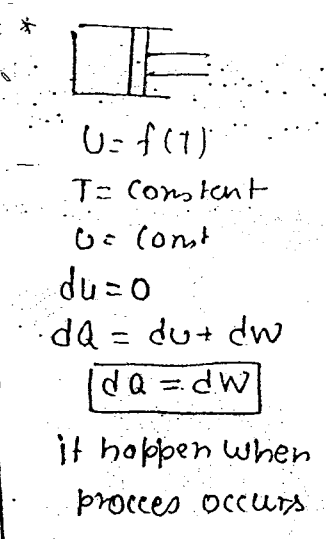 *
U = f(T)
T = Constant
U = Const
du = 0
dQ = du + dW
dQ = dW
it happen when
procces occurs